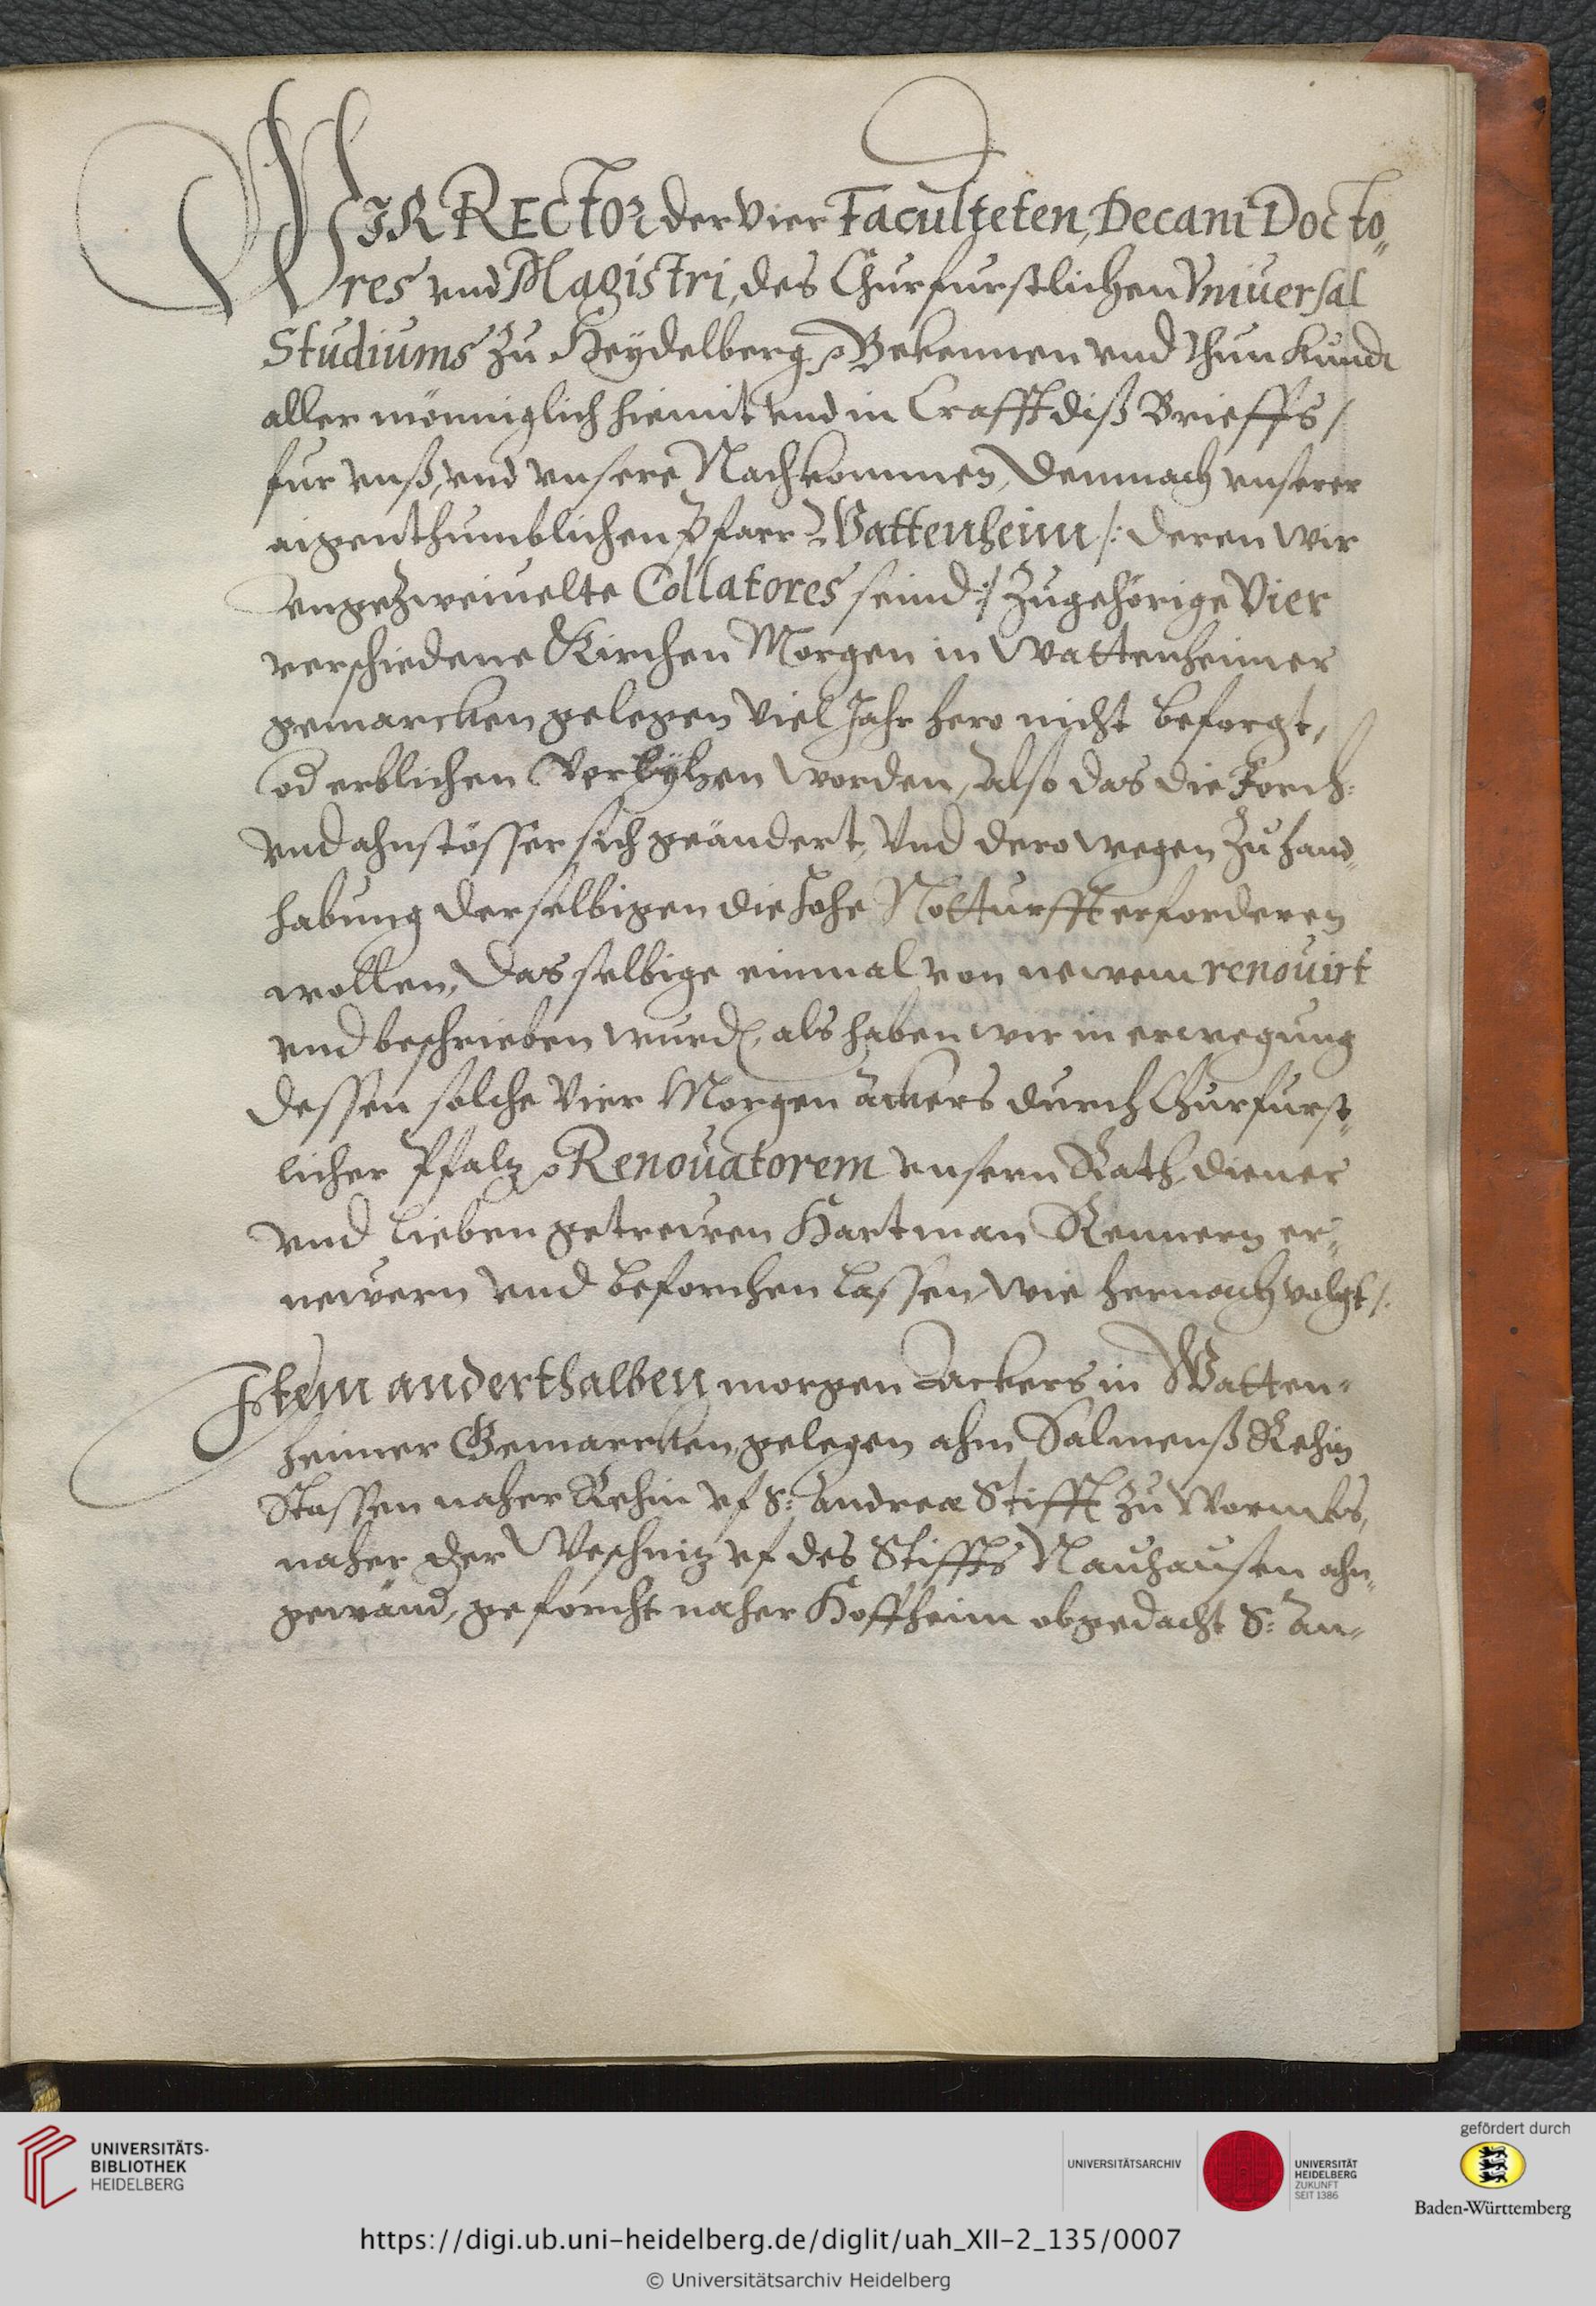 WIR RECTOR der vier Faculteten, Decani Docto„
res vnd Magistri, des Churfurstlichen Vniuersal
Studiums zu Heÿdelberg, Bekennen vnd thun kundt
aller mönniglich hiemit vnd in Crafft diß Brieffs /
fur vnß, vnd vnsere Nachkommen, Demnach vnserer
aigenthumblichen Pfarr Wattenheim /: deren wir
vngezweiuelte Collatores seind :/ zugehörige Vier
verschiedene Kirchen Morgen in Wattenheimer
gemarcken gelegen viel Jahr hero nicht beforgt,
od erblichen Verlÿhen worden, also das die Forch:
vnd ahnstösser sich geändert, Vnd dero wegen zu hand„
habung derselbigen die hohe Notturfft erforderen
wollen, Das selbige einmal von newem renouirt
vnd beschrieben wurde, als haben wir in erwegung
dessen solche Vier Morgen ackers durch Churfurst„
licher Pfaltz Renouatorem vnsern Rath, diener
vnd lieben getrewen Hartman Rennern er„
newern vnd beforchen lassen, wie hernach volgt /.
Item anderthalben morgen Ackers in Watten„
heimer Gemarcken, gelegen ahm Salmenß Rehin
Stossen naher Rehin vf S: Andreæ Stifft zu Wormbs,
naher der Weschnitz vf des Stiffts Neuhausen ahn„
gewänd, geforcht naher Hoffheim obgedacht S: An„
UNIVERSITÄTS-
BIBLIOTHEK
HEIDELBERG
UNIVERSITÄTSARCHIV
UNIVERSITÄT
HEIDELBERG
ZUKUNFT
SEIT 1386
gefördert durch
Baden-Württemberg
https://digi.ub.uni-heidelberg.de/diglit/uah_XII-2_135/0007
© Universitätsarchiv Heidelberg